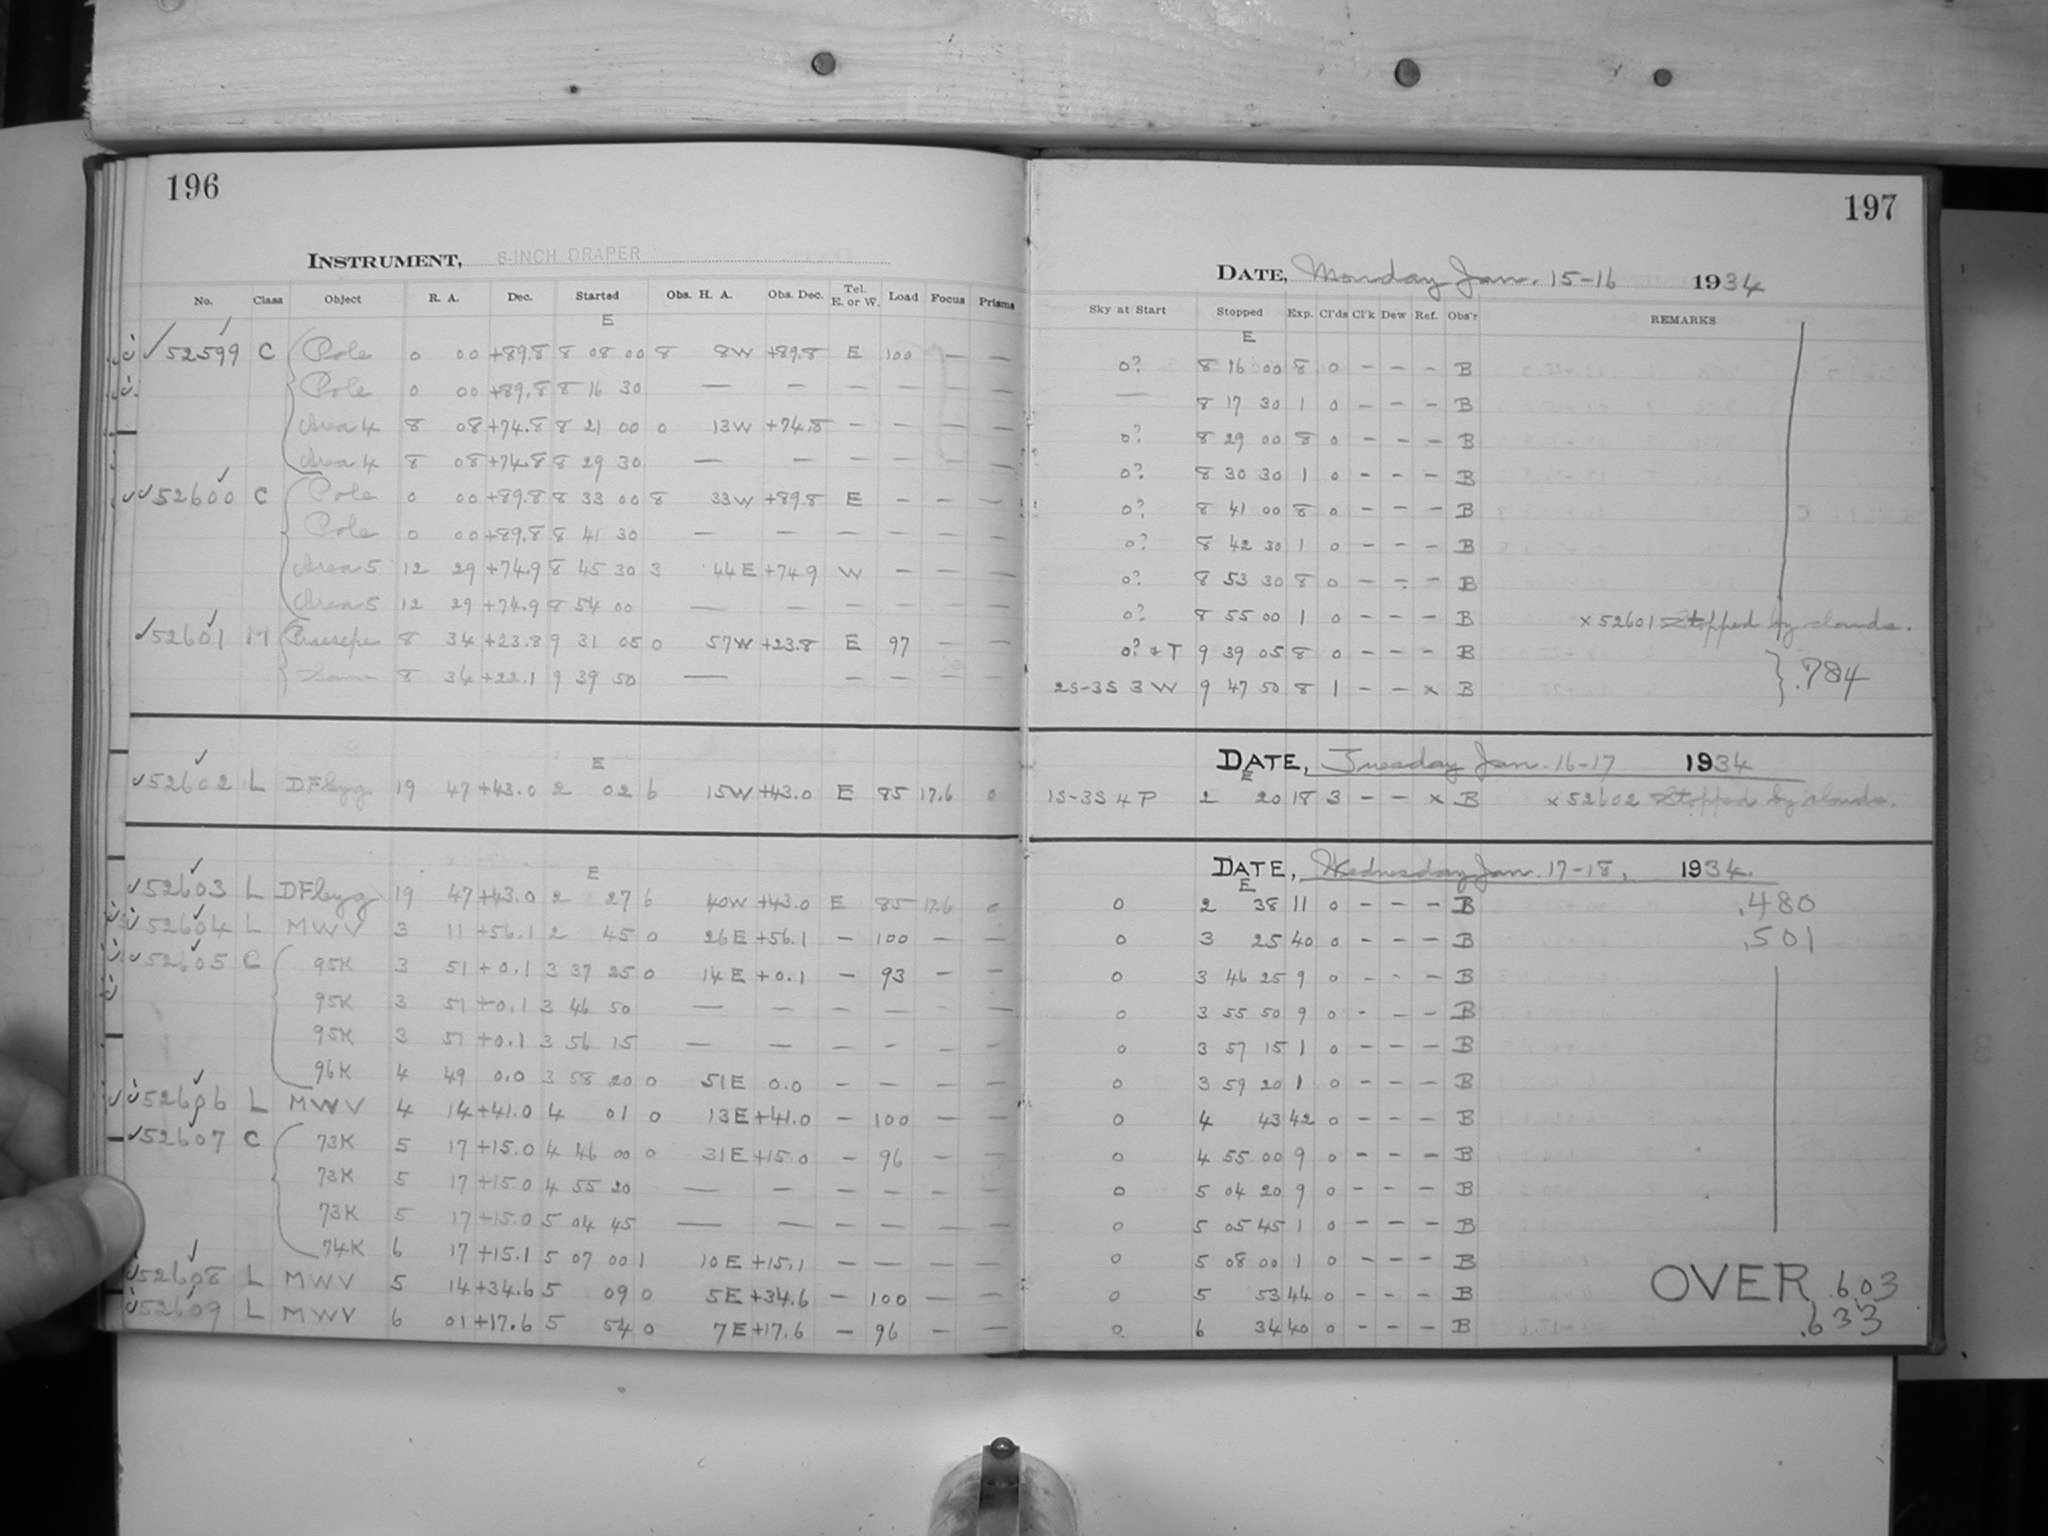 196
INSTRUMENT, 8-INCH DRAPER
No. Class Object R. A. Dec. Started Obs. H. A. Obs. Dec. Tel. E. or W. Load Focus Prisms
E
✓52599 C Pole 0 00 +89.8 8 08 00 8 8W +89.8 E 100 — —
Pole 0 00 +89.8 8 16 30 — — — — — —
Area 4 8 08 +74.8 8 21 00 0 13W +74.8 — — — —
Area 4 8 08 +74.8 8 29 30 — — — — — —
✓✓52600 C Pole 0 00 +89.8 8 33 00 8 33W +89.8 E — — —
Pole 0 00 +89.8 8 41 30 — — — — — —
Area 5 12 29 +74.9 8 45 30 3 44E +74.9 W — — —
Area 5 12 29 +74.9 8 54 00 — — — — — —
✓52601 M Praesepe 8 34 +23.8 9 31 05 0 57W +23.8 E 97 — —
Same 8 34 +22.1 9 39 50 — — — — —
E
✓52602 L DFlyg 19 47 +43.0 2 02 6 15W +43.0 E 85 17.6 0
E
✓52603 L DFlyg 19 47 +43.0 2 27 6 40W +43.0 E 85 17.6 0
✓52604 L MWV 3 11 +56.1 2 45 0 26E +56.1 — 100 — —
✓52605 C 95K 3 51 +0.1 3 37 25 0 14E +0.1 — 93 — —
95K 3 51 +0.1 3 46 50 — — — — — —
95K 3 51 +0.1 3 56 15 — — — — — —
96K 4 49 0.0 3 58 20 0 51E 0.0 — — — —
✓52606 L MWV 4 14 +41.0 4 01 0 13E +41.0 — 100 — —
✓52607 C 73K 5 17 +15.0 4 46 00 0 31E +15.0 — 96 — —
73K 5 17 +15.0 4 55 20 — — — — — —
73K 5 17 +15.0 5 04 45 — — — — — —
74K 6 17 +15.1 5 07 00 1 10E +15.1 — — — —
✓52608 L MWV 5 14 +34.6 5 09 0 5E +34.6 — 100 — —
✓52609 L MWV 6 01 +17.6 5 54 0 7E +17.6 — 96 — —
197
DATE, Monday Jan. 15-16 1934
Sky at Start Stopped Exp. Cl'ds Cl'k Dew Ref. Obs'r REMARKS
E
0? 8 16 00 8 0 – – – B
— 8 17 30 1 0 – – – B
0? 8 29 00 8 0 – – – B
0? 8 30 30 1 0 – – – B
0? 8 41 00 8 0 – – – B
0? 8 42 30 1 0 – – – B
0? 8 53 30 8 0 – – – B
0? 8 55 00 1 0 – – – B x 52601 Stopped by clouds.
0? + T 9 39 05 8 0 – – – B
2S-3S 3 W 9 47 50 8 1 – – x B .784
DATE, Tuesday Jan. 16-17 1934
E
1S-3S 4 P 2 20 18 3 – – x B x 52602 Stopped by clouds.
DATE, Wednesday Jan. 17-18, 1934.
E
0 2 38 11 0 – – – B .480
0 3 25 40 0 – – – B .501
0 3 46 25 9 0 – – – B
0 3 55 50 9 0 – – – B
0 3 57 15 1 0 – – – B
0 3 59 20 1 0 – – – B
0 4 43 42 0 – – – B
0 4 55 00 9 0 – – – B
0 5 04 20 9 0 – – – B
0 5 05 45 1 0 – – – B
0 5 08 00 1 0 – – – B
0 5 53 44 0 – – – B OVER .603
0 6 34 40 0 – – – B .633